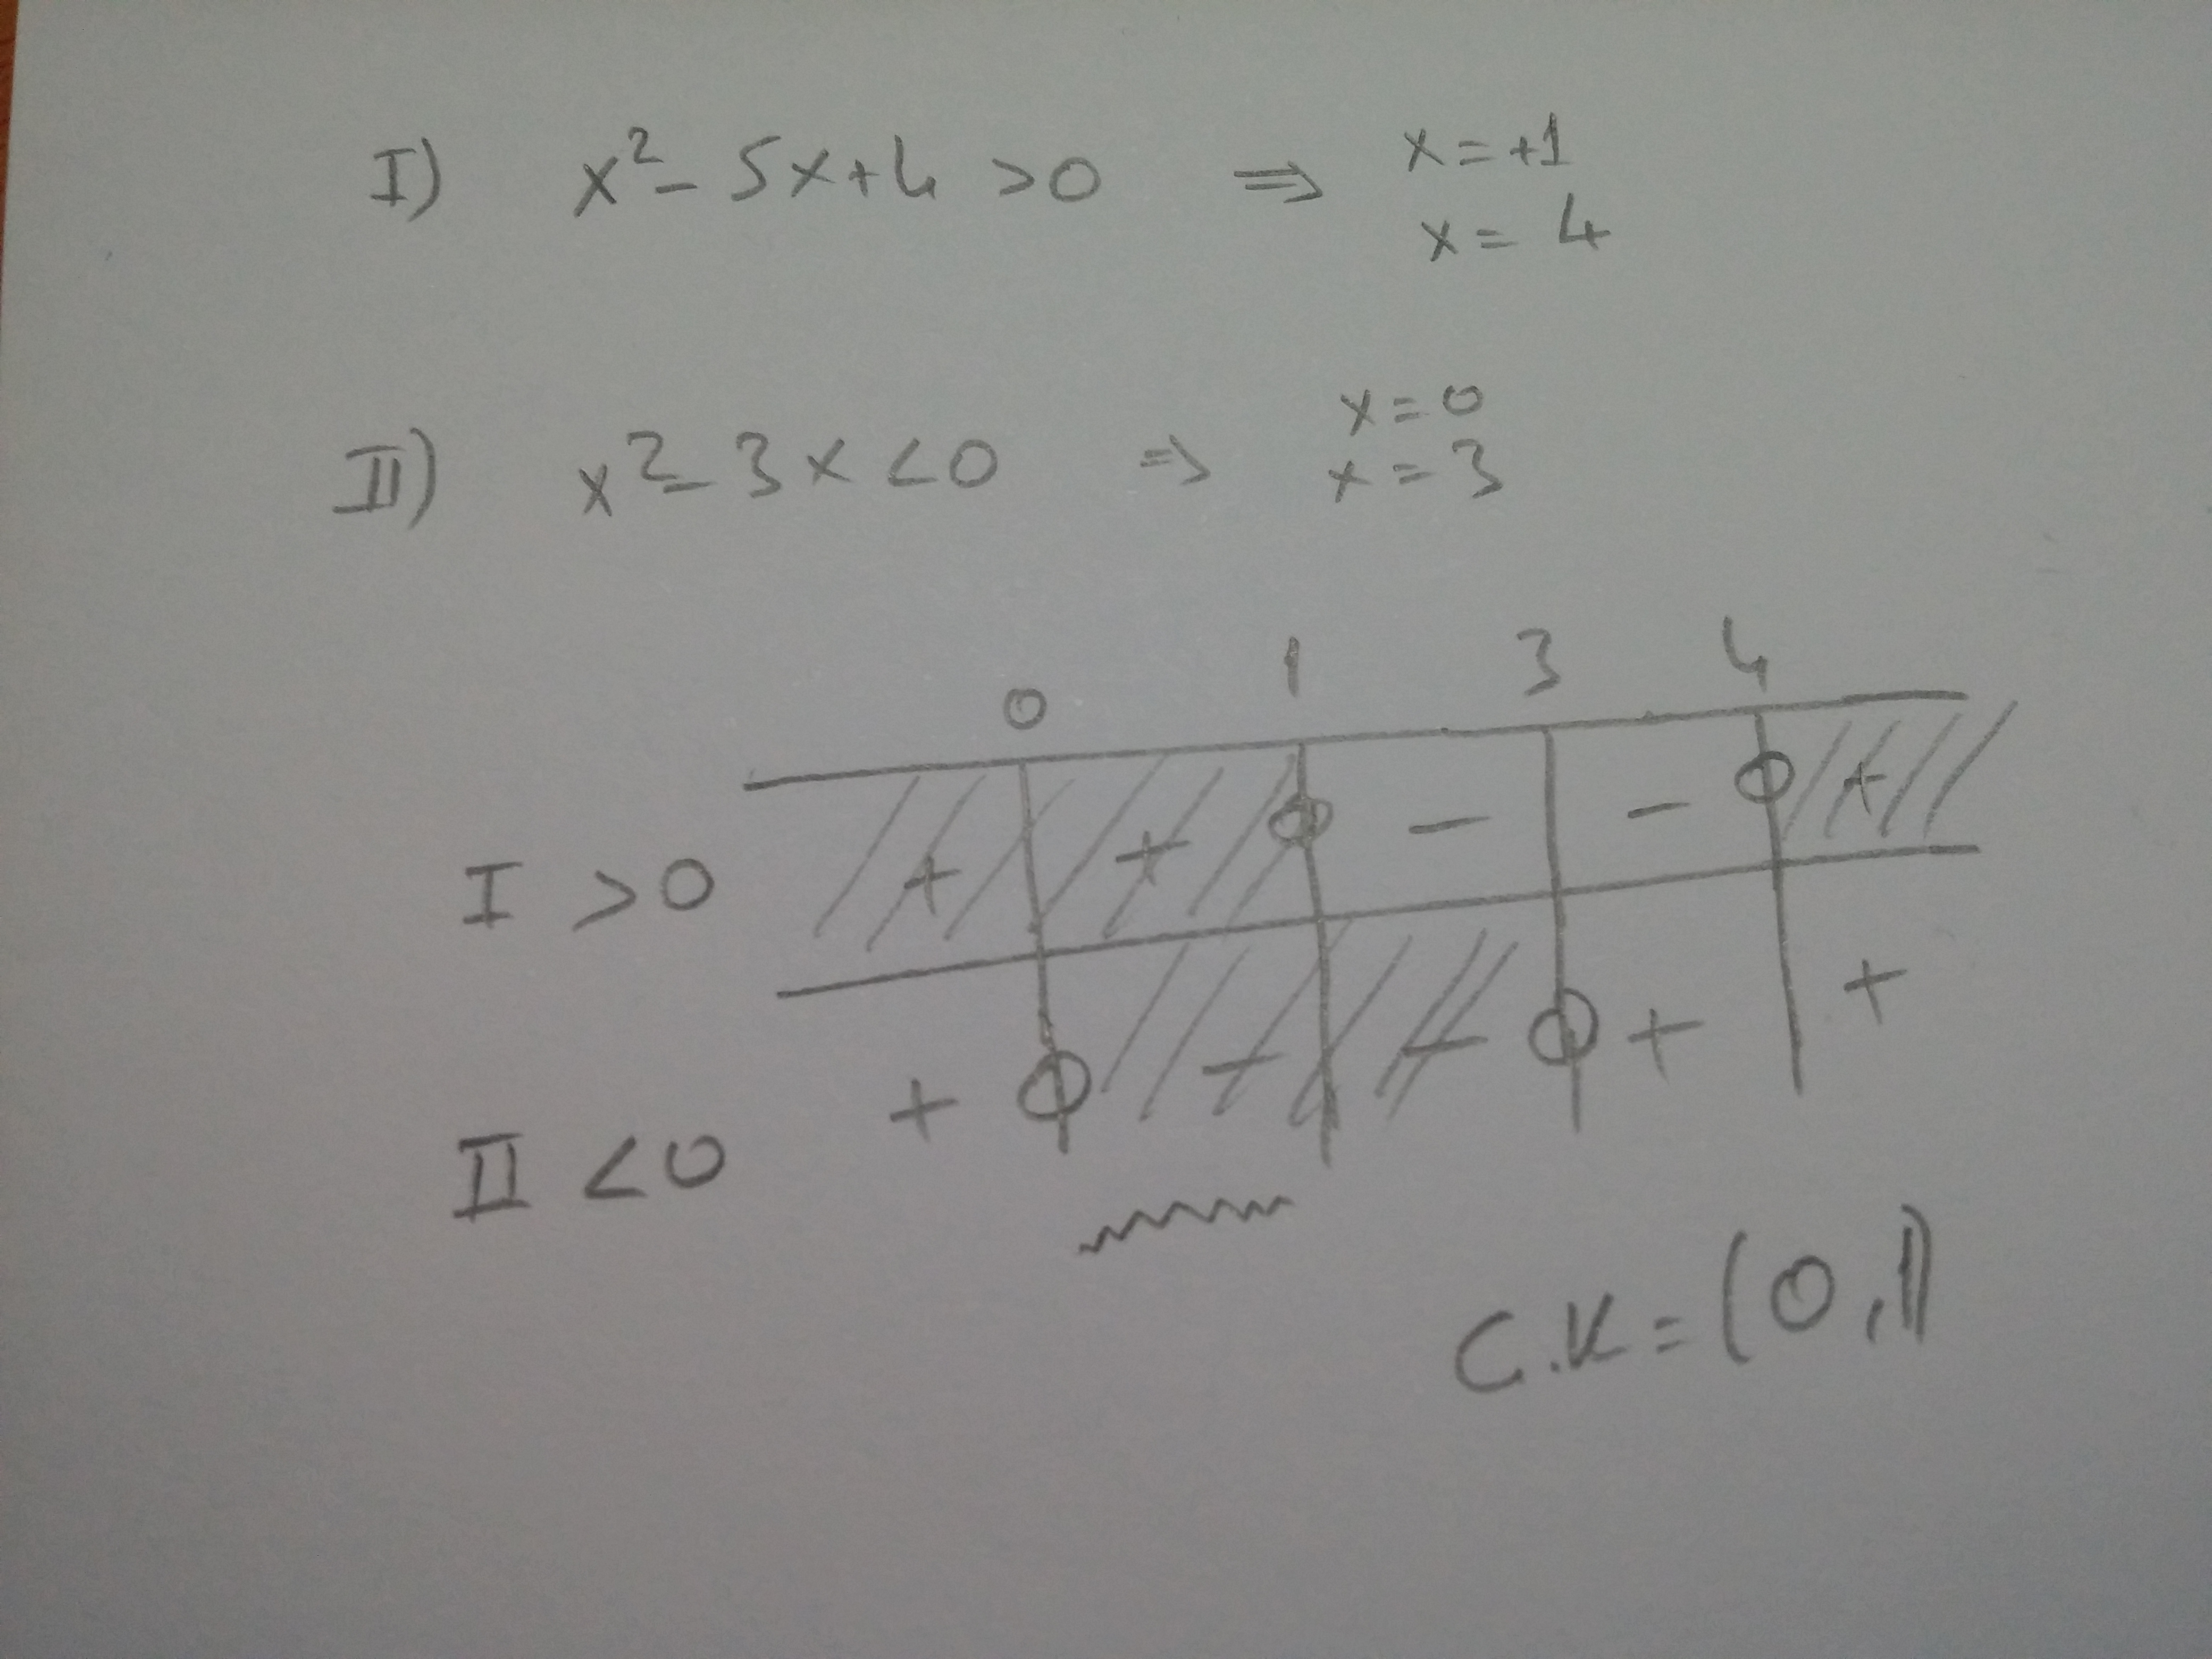 I) x²- 5x+4 >0 ⇒ x=+1
x= 4
II) x²- 3x<0 ⇒ x=0
x=3
0 1 3 4
I >0 + + - - +
II <0 + - - + +
C.K=(0,1)